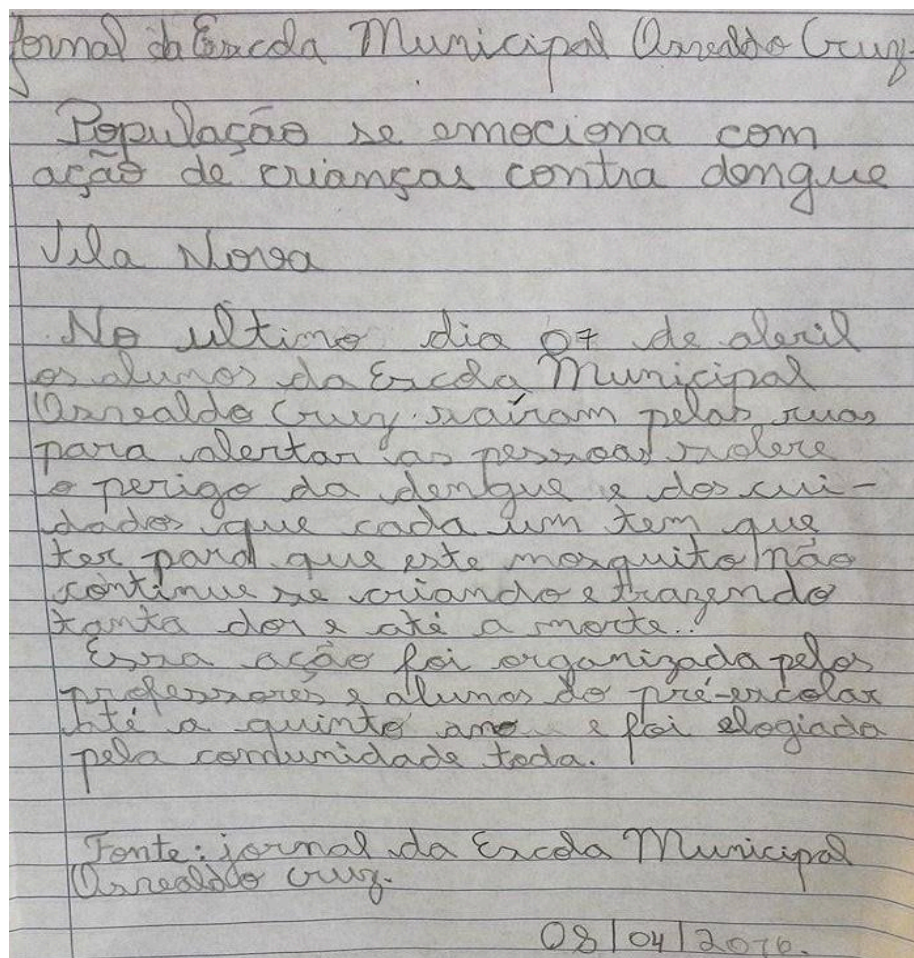 Jornal da Escola Municipal Osvaldo Cruz
População se emociona com
ação de crianças contra dengue
Vila Nova
No ultimo dia 07 de abril
os alunos da Escola Municipal
Osvaldo Cruz saíram pelas ruas
para alertar as pessoas sobre
o perigo da dengue e dos cui-
dados que cada um tem que
ter para que este mosquito não
continue se criando e trazendo
tanta dor e até a morte.
Essa ação foi organizada pelos
professores e alunos do pré-escolar
até o quinto ano e foi elogiada
pela comunidade toda.
Fonte: jornal da Escola Municipal
Osvaldo Cruz.
08/04/2016.